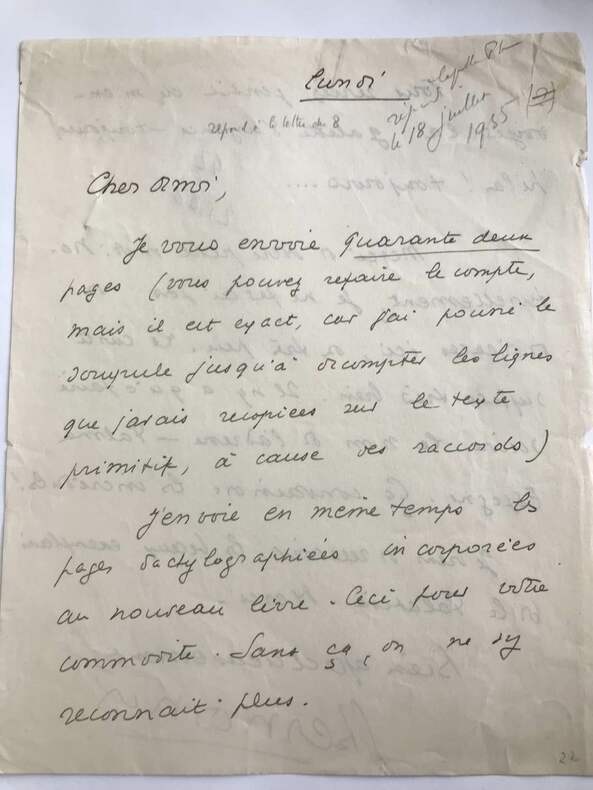 lundi
répond à la lettre du 8
le 18 juillet 1935
Cher ami,
Je vous envoie quarante deux
pages (vous pouvez refaire le compte,
mais il est exact, car j'ai poussé le
scrupule jusqu'à décompter les lignes
que j'avais recopiées sur le texte
primitif, à cause des raccords)
J'envoie en même temps les
pages dactylographiées incorporées
au nouveau livre. Ceci pour votre
commodité. Sans ça, on ne s'y
reconnait plus.
22